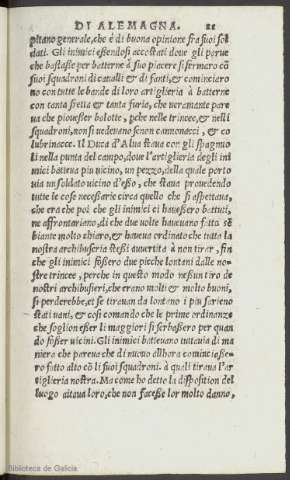 DI ALEMAGNA. 21
pitano generale, che è di buona opinione fra suoi sol
dati. Gli inimici essendosi accostati doue gli parue
che bastasse per batterne à suo piacere si fermero cõ
suoi squadroni di caualli & di fanti, & cominciaro
no con tutte le bande di loro artiglieria à batterne
con tanta fretta & tanta furia, che ueramente pare
ua che piouesser balotte, pche nelle trincee, & nelli
squadroni, non si uedeuano senon cannonacci, & co
lubrinacce. Il Duca d'Alua staua con gli spagnuo
li nella punta del campo, doue l'artiglieria degli ini
mici batteua piu uicino, un pezzo, della quale porto
uia un soldato uicino d'esso, che staua prouedendo
tutte le cose necessarie circa quello che si aspettaua,
che era che poi che gli inimici ci hauessero battuti,
ne affrontariano, di che due uolte haueuano fatto sẽ
biante molto chiaro, & haueua ordinato che tutta la
nostra archibuseria stessi auuertita à non tirar, fin
che gli inimici fossero due picche lontani dalle no=
stre trincee, perche in questo modo nessun tiro de
nostri archibusieri, che erano molti & molto buoni,
si perderebbe, et se tirauan da lontano i piu sarieno
stati uani, & cosi comando che le prime ordinanze
che soglion esser li maggiori si serbassero per quan
do fosser uicini. Gli inimici batteuano tuttauia di ma
niera che pareua che di nuouo allhora cominciasse=
ro fatto alto cõ li suoi squadroni. à quali tiraua l'ar
tiglieria nostra. Ma come ho detto la disposition del
luogo aitaua loro, che non facesse lor molto danno,
Biblioteca de Galicia